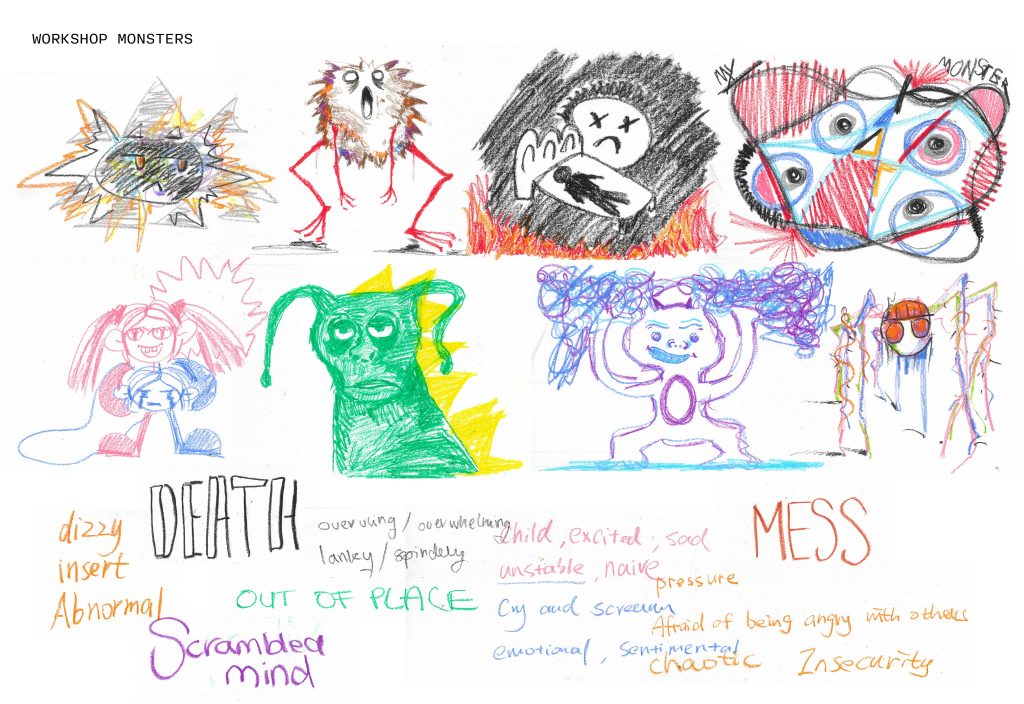 WORKSHOP MONSTERS
MY MONSTER
DEATH
dizzy
insert
Abnormal
overuling / overwhelming
lanky / spindely
OUT OF PLACE
Scrambled
mind
child, excited, sad
unstable, naive
Cry and scream
emotional, sentimental
MESS
pressure
Afraid of being angry with others
chaotic Insecurity